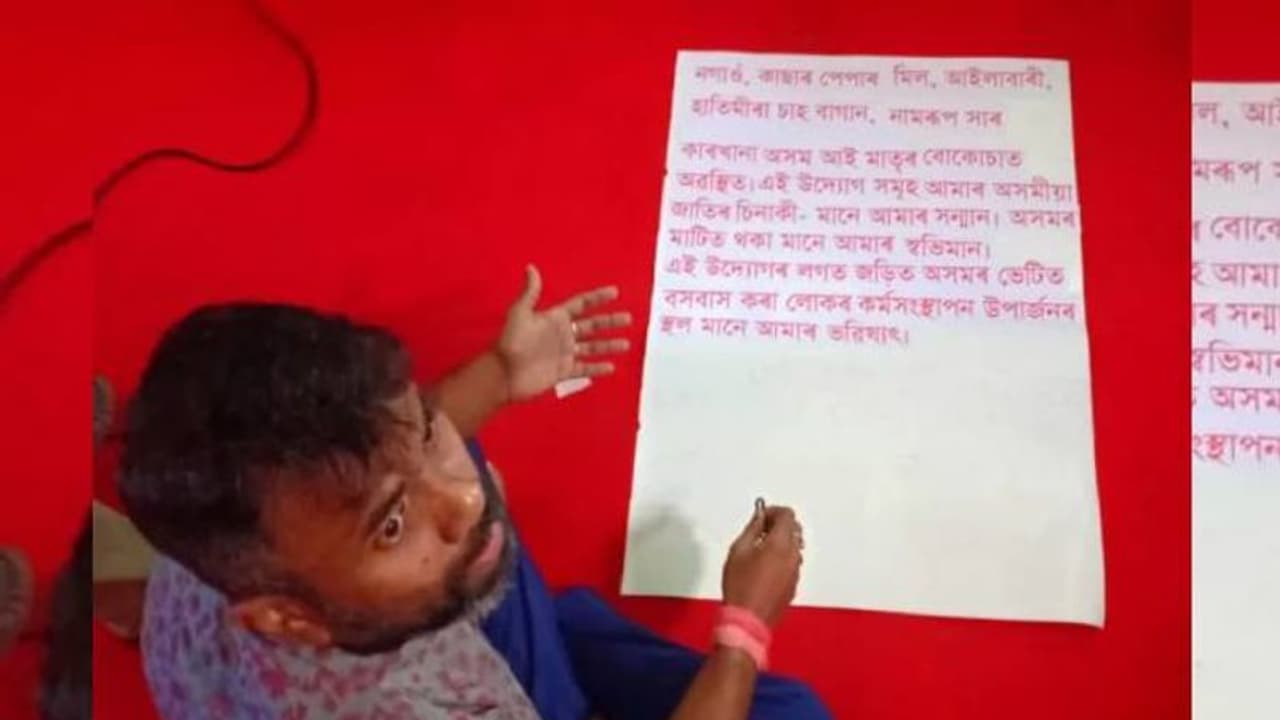 নগাওঁ, কাছাৰ পেপাৰ মিল, আইলাবাৰী,
হাতিমীৰা চাহ বাগান, নামৰূপ সাৰ
কাৰখানা অসম আই মাতৃৰ বোকোচাত
অৱস্থিত। এই উদ্যোগ সমূহ আমাৰ অসমীয়া
জাতিৰ চিনাকী- মানে আমাৰ সন্মান। অসমৰ
মাটিত থকা মানে আমাৰ স্বভিমান।
এই উদ্যোগৰ লগত জড়িত অসমৰ ভেটিত
বসবাস কৰা লোকৰ কৰ্মসংস্থাপন উপাৰ্জনৰ
স্থল মানে আমাৰ ভৱিষ্যৎ।
ল, আই
মৰূপ
ৰ বোকো
হ আমা
ৰ সন্মা
স্বভিমান
অসম
ংস্থাপন